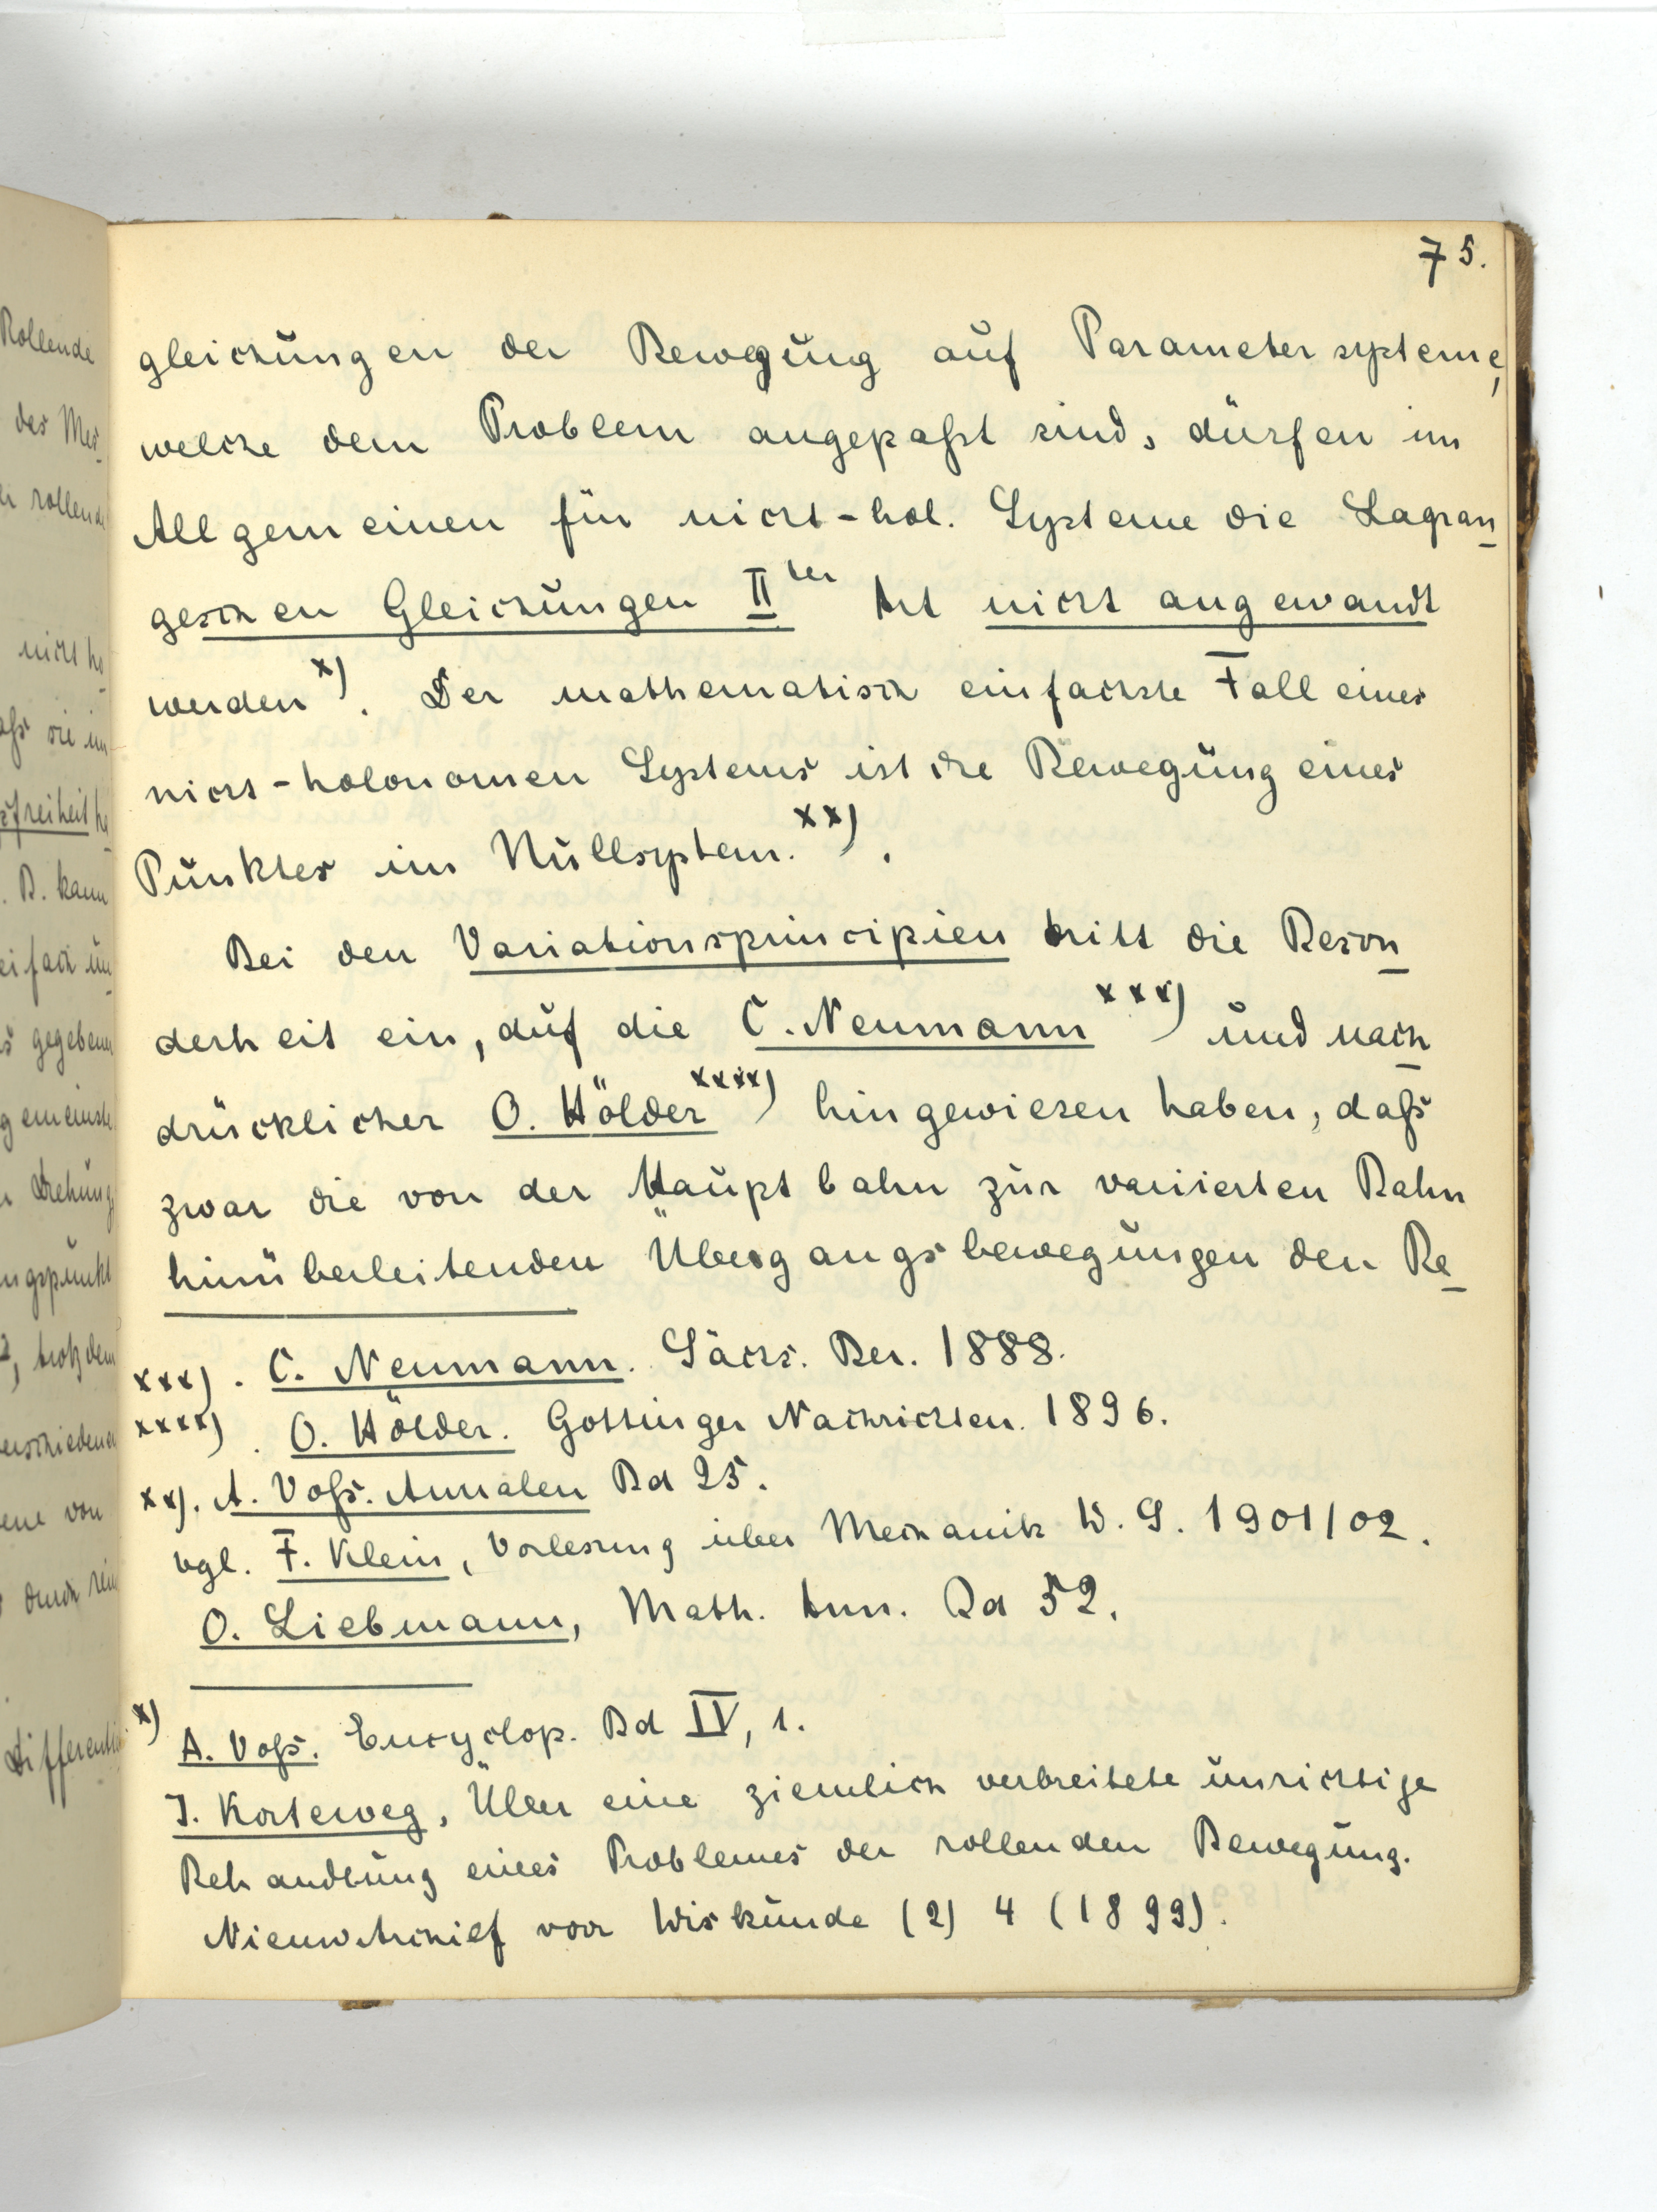 75.
gleichungen der Bewegung auf Parametersysteme,
welche dem Problem angepaßt sind, dürfen im
Allgemeinen für nicht-hol. Systeme die Lagran
geschen Gleichungen II ter Art nicht angewandt
werden x). Der mathematisch einfachste Fall eines
nicht-holonomen Systems ist die Bewegung eines
Punktes im Nullsystem. xx).
Bei den Variationsprincipien tritt die Beson
derheit ein, auf die C. Neumann xxx) und nach
drücklicher O. Hölder xxxx) hingewiesen haben, daß
zwar die von der Hauptbahn zur variierten Bahn
hinüberleitenden Übergangsbewegungen den Be
xxx). C. Neumann. Sächs. Ber. 1888.
xxxx). O. Hölder. Gottinger Nachrichten. 1896.
xx). A. Voß. Annalen Bd 25.
vgl. F. Klein, Vorlesung über Mechanik W. S. 1901/02.
O. Liebmann, Math. Ann. Bd 52.
x) A. Voß. Encyclop. Bd IV, 1.
J. Korteweg, Über eine ziemlich verbreitete unrichtige
Behandlung eines Problemes der rollenden Bewegung.
Nieuw Archief voor Wiskunde (2) 4 (1899).
Rollende
des Mes
rollend
nicht he
sie im
freiheit he
. B. kann
gegeben
Drehung
, trotzdem
erschiedenen
von
durch
Differenti